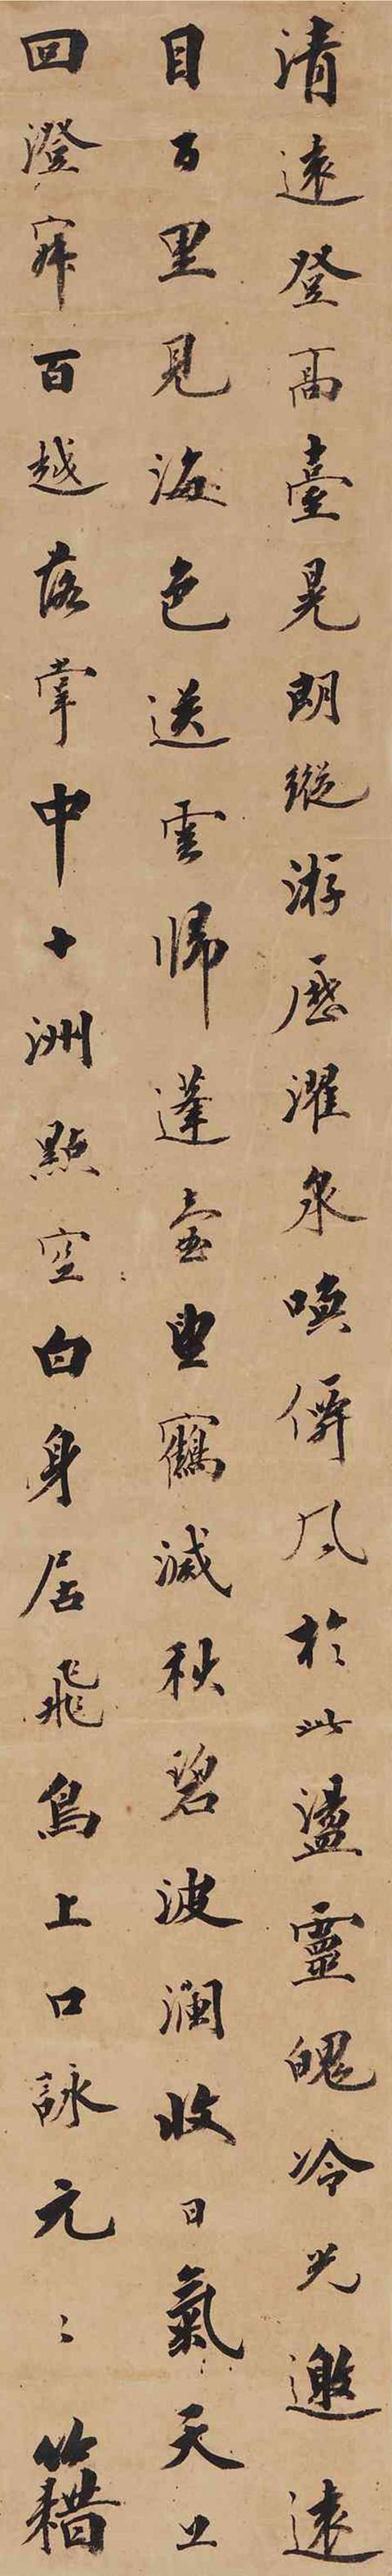 清遠登高臺晃朗縱游歷濯泉喚僊風於此盪靈魄冷光邀遠
目百里見海色送雲歸蓬壺望鶴滅秋碧波瀾收日氣天上
回澄寂百越落掌中十洲點空白身居飛鳥上口詠元〻籍